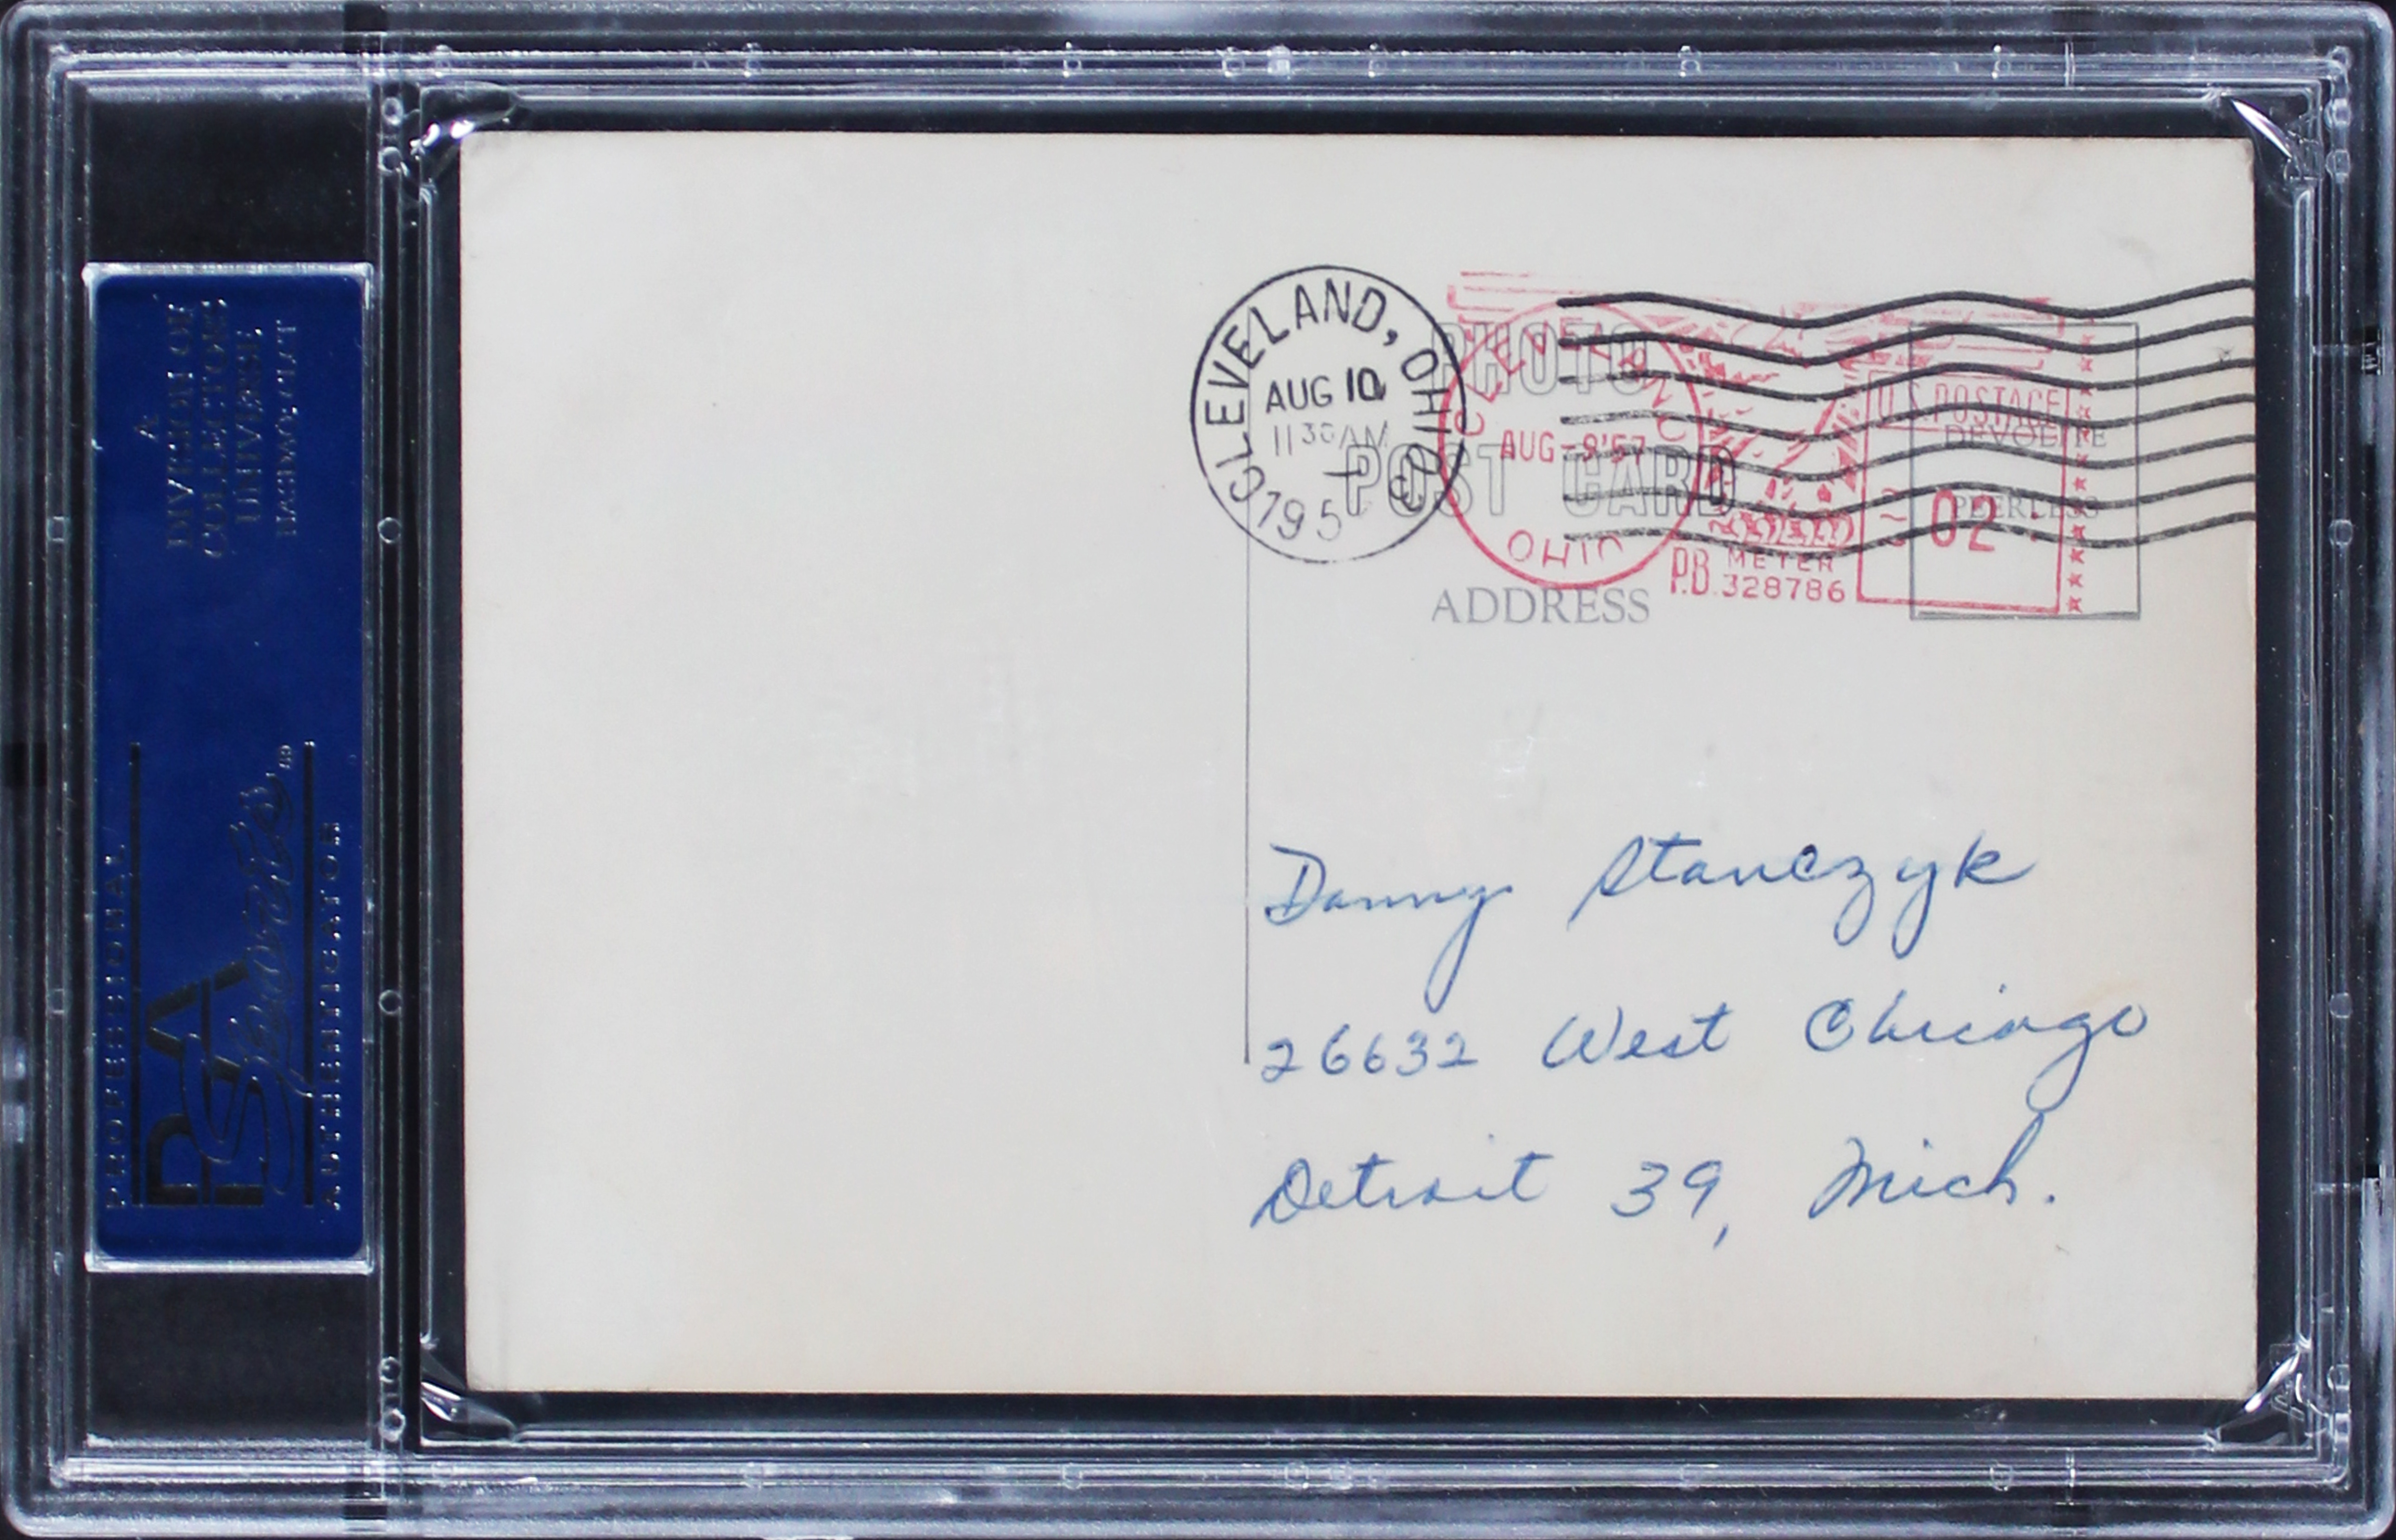 A
DIVISION OF
COLLECTORS
UNIVERSE
NASDAQ: CLCT
PROFESSIONAL
PSA
AUTHENTICATOR
CLEVELAND, OHIO
AUG 10
11 30 AM
195
PHOTO
POST CARD
CLEVELAND
AUG -9'57
OHIO
P.B. METER
328786
U.S. POSTAGE
02
DEVOLITE
PEERLESS
ADDRESS
Danny Stanczyk
26632 West Chicago
Detroit 39, Mich.